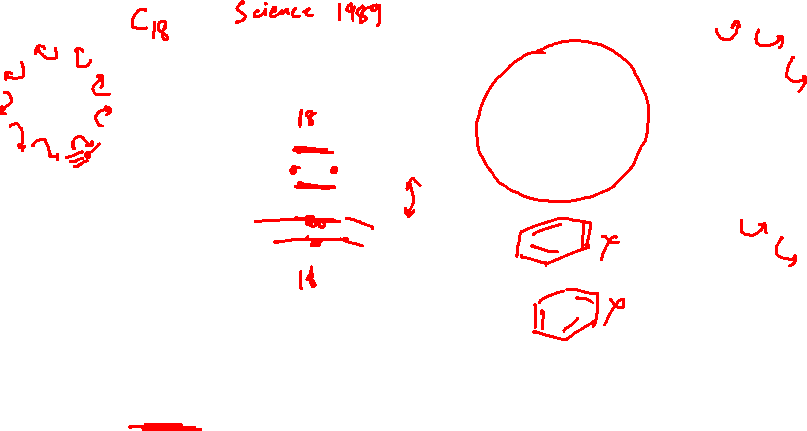 C18 Science 1989
18
18
Y
Y